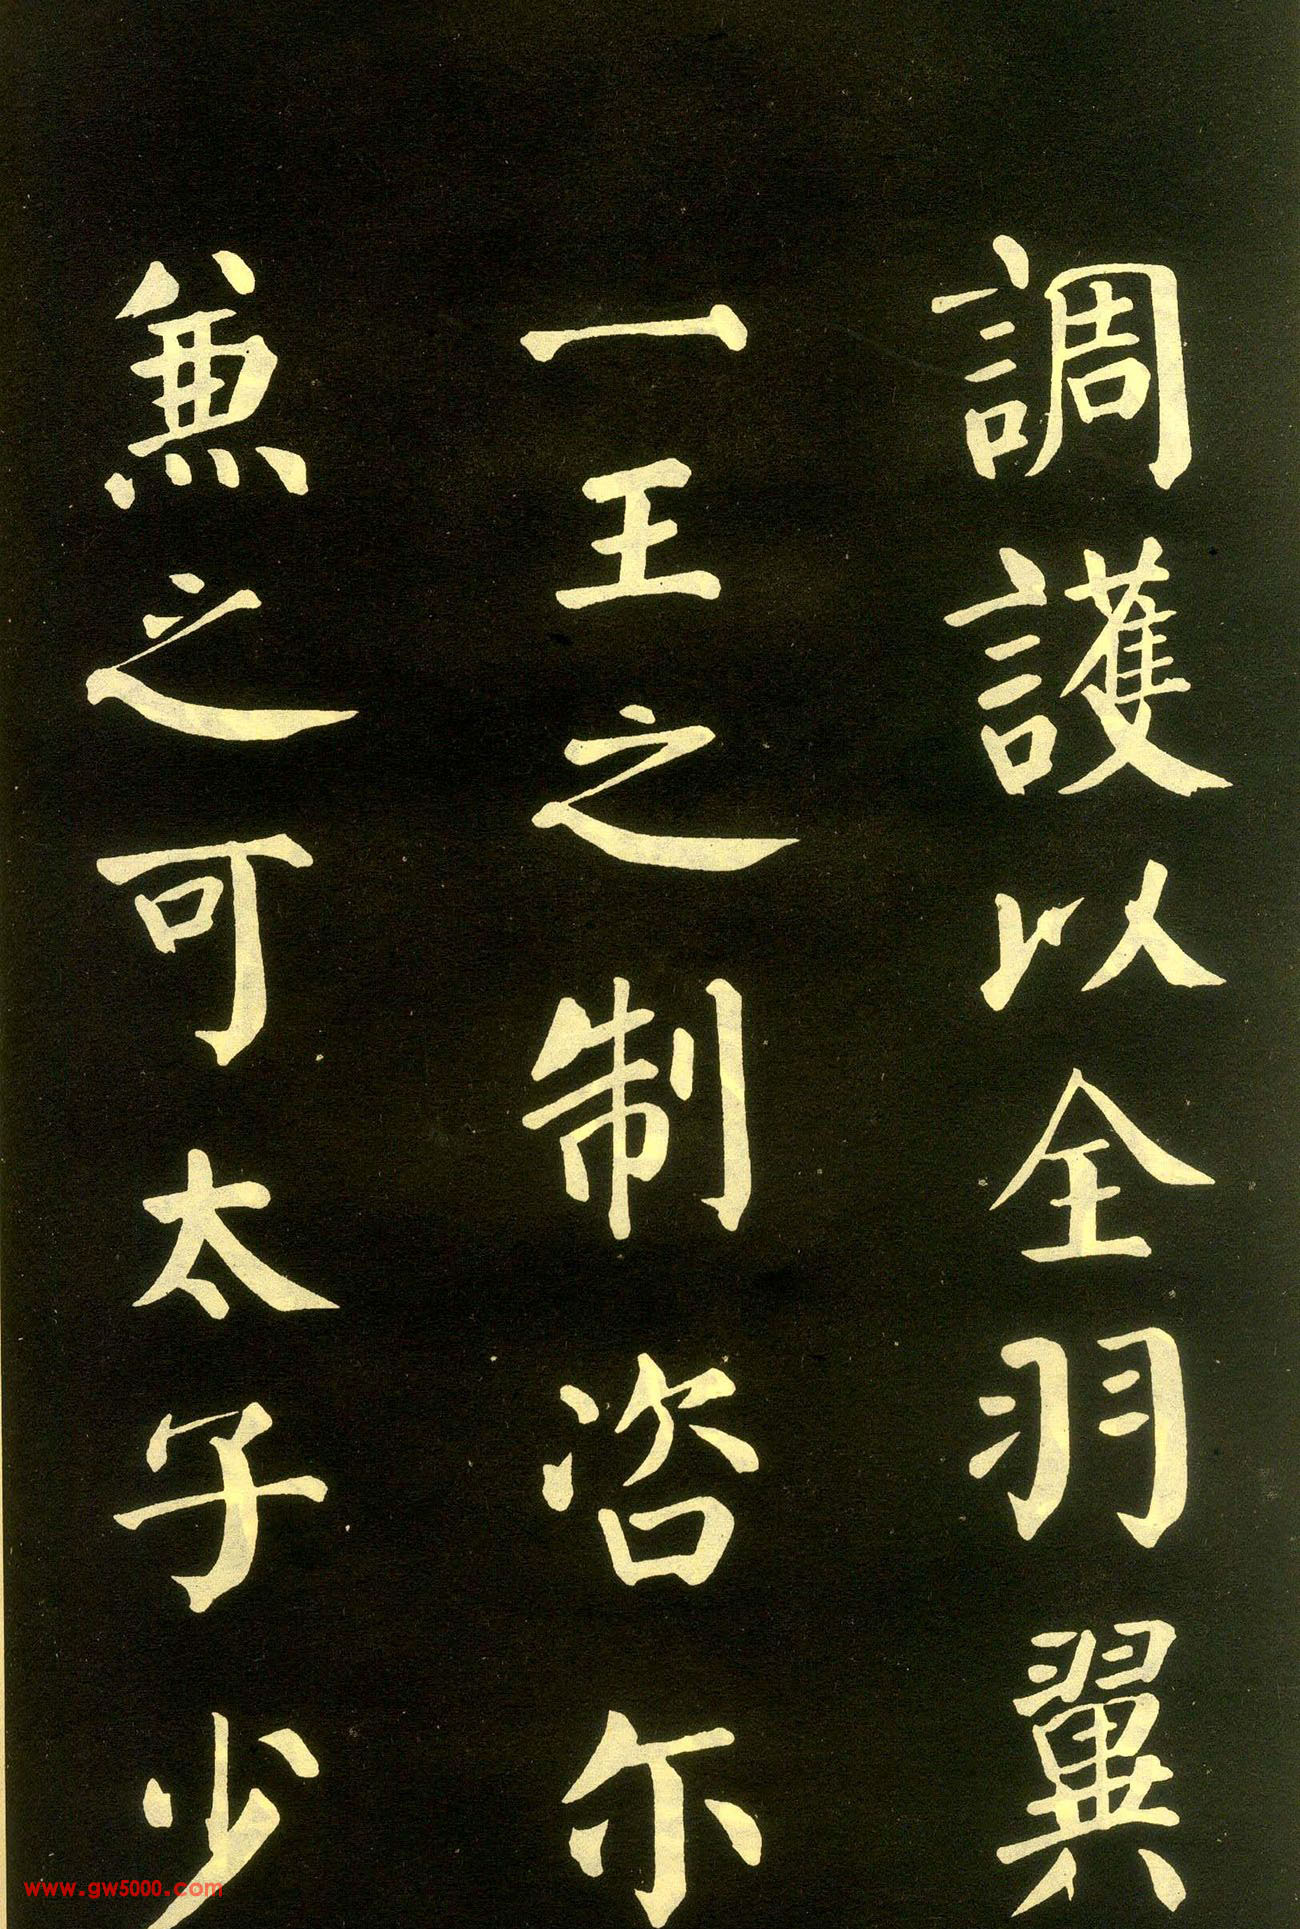 調護以全羽翼
一王之制咨尓
兼之可太子少
www.gw5000.com